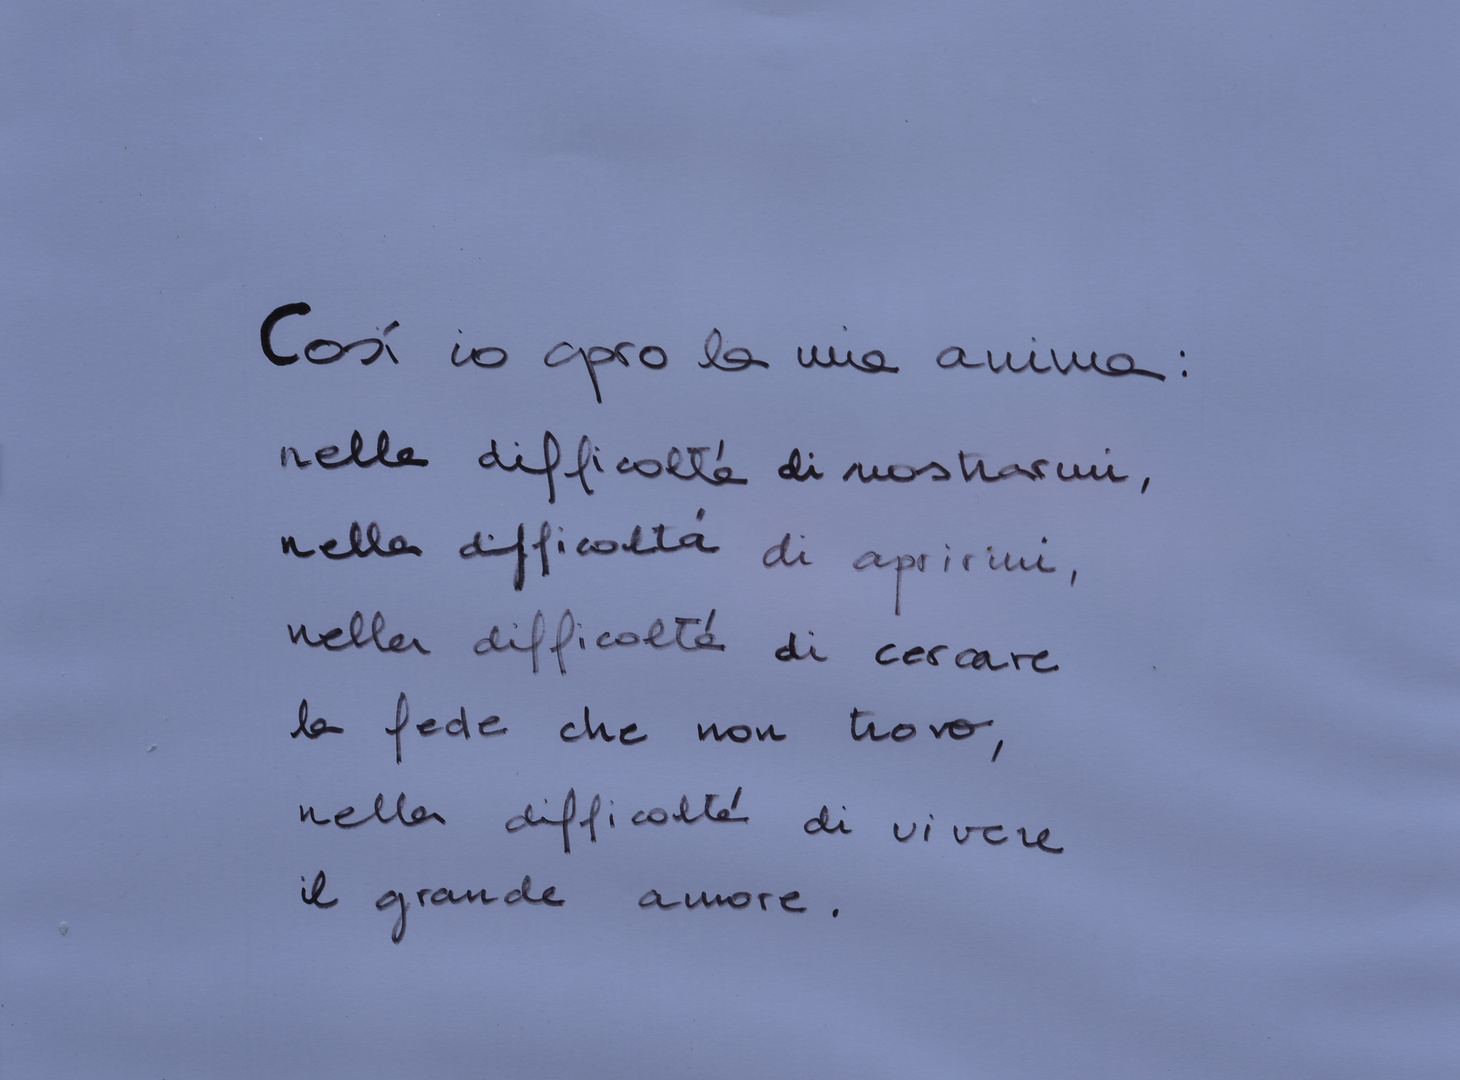 Così io apro la mia anima:
nella difficoltá di mostrarmi,
nella difficoltá di aprirmi,
nella difficoltá di cercare
la fede che non trovo,
nella difficoltá di vivere
il grande amore.